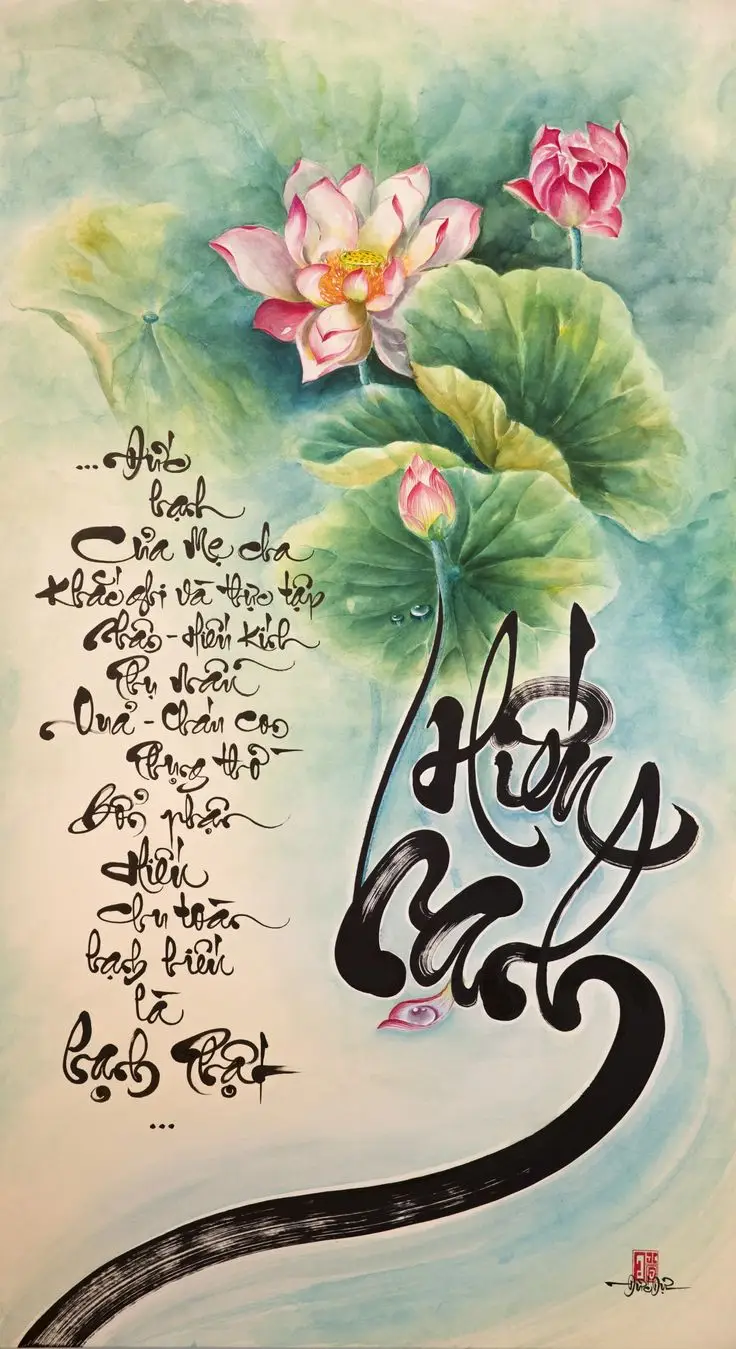 ...Đức
hạnh
Của Mẹ cha
Khắc ghi và thực tập
Nhân - Hiếu kính
Phụ mẫu
Quả - Cháu con
Phụng thờ
Bổn phận
Hiếu
chu toàn
hạnh hiếu
là
hạnh Phật
...
Hiếu
Hạnh